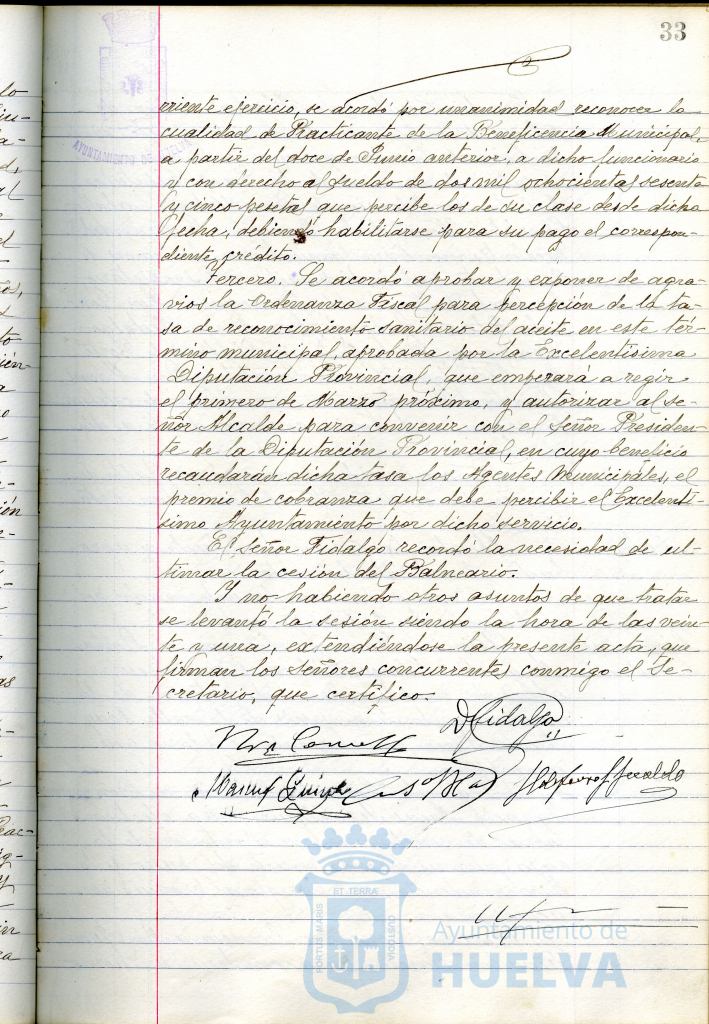 33
rriente ejercicio, se acordó por unanimidad reconocer la
cualidad de Practicante de la Beneficencia Municipal,
a partir del doce de Junio anterior, a dicho funcionario
y con derecho al sueldo de dos mil ochocientas sesenta
y cinco pesetas que percibe los de su clase desde dicha
fecha, debiendo habilitarse para su pago el correspon-
diente crédito.
Tercero. Se acordó aprobar y exponer de agra-
vios la Ordenanza Fiscal para percepción de la ta-
sa de reconocimiento sanitario del aceite en este tér-
mino municipal, aprobada por la Excelentísima
Diputación Provincial, que empezará a regir
el primero de Marzo próximo, y autorizar al se-
ñor Alcalde para convenir con el señor Presiden-
te de la Diputación Provincial, en cuyo beneficio
recaudarán dicha tasa los Agentes Municipales, el
premio de cobranza que debe percibir el Excelentí-
simo Ayuntamiento por dicho servicio.
El señor Fidalgo recordó la necesidad de ul-
timar la cesión del Balneario.
Y no habiendo otros asuntos de que tratar
se levantó la sesión siendo la hora de las vein-
te y una, extendiéndose la presente acta, que
firman los señores concurrentes conmigo el Se-
cretario, que certifico.
D Fidalgo
AYUNTAMIENTO DE HUELVA
ET TERRÆ
PORTUS MARIS
CUSTODIA
Ayuntamiento de
HUELVA